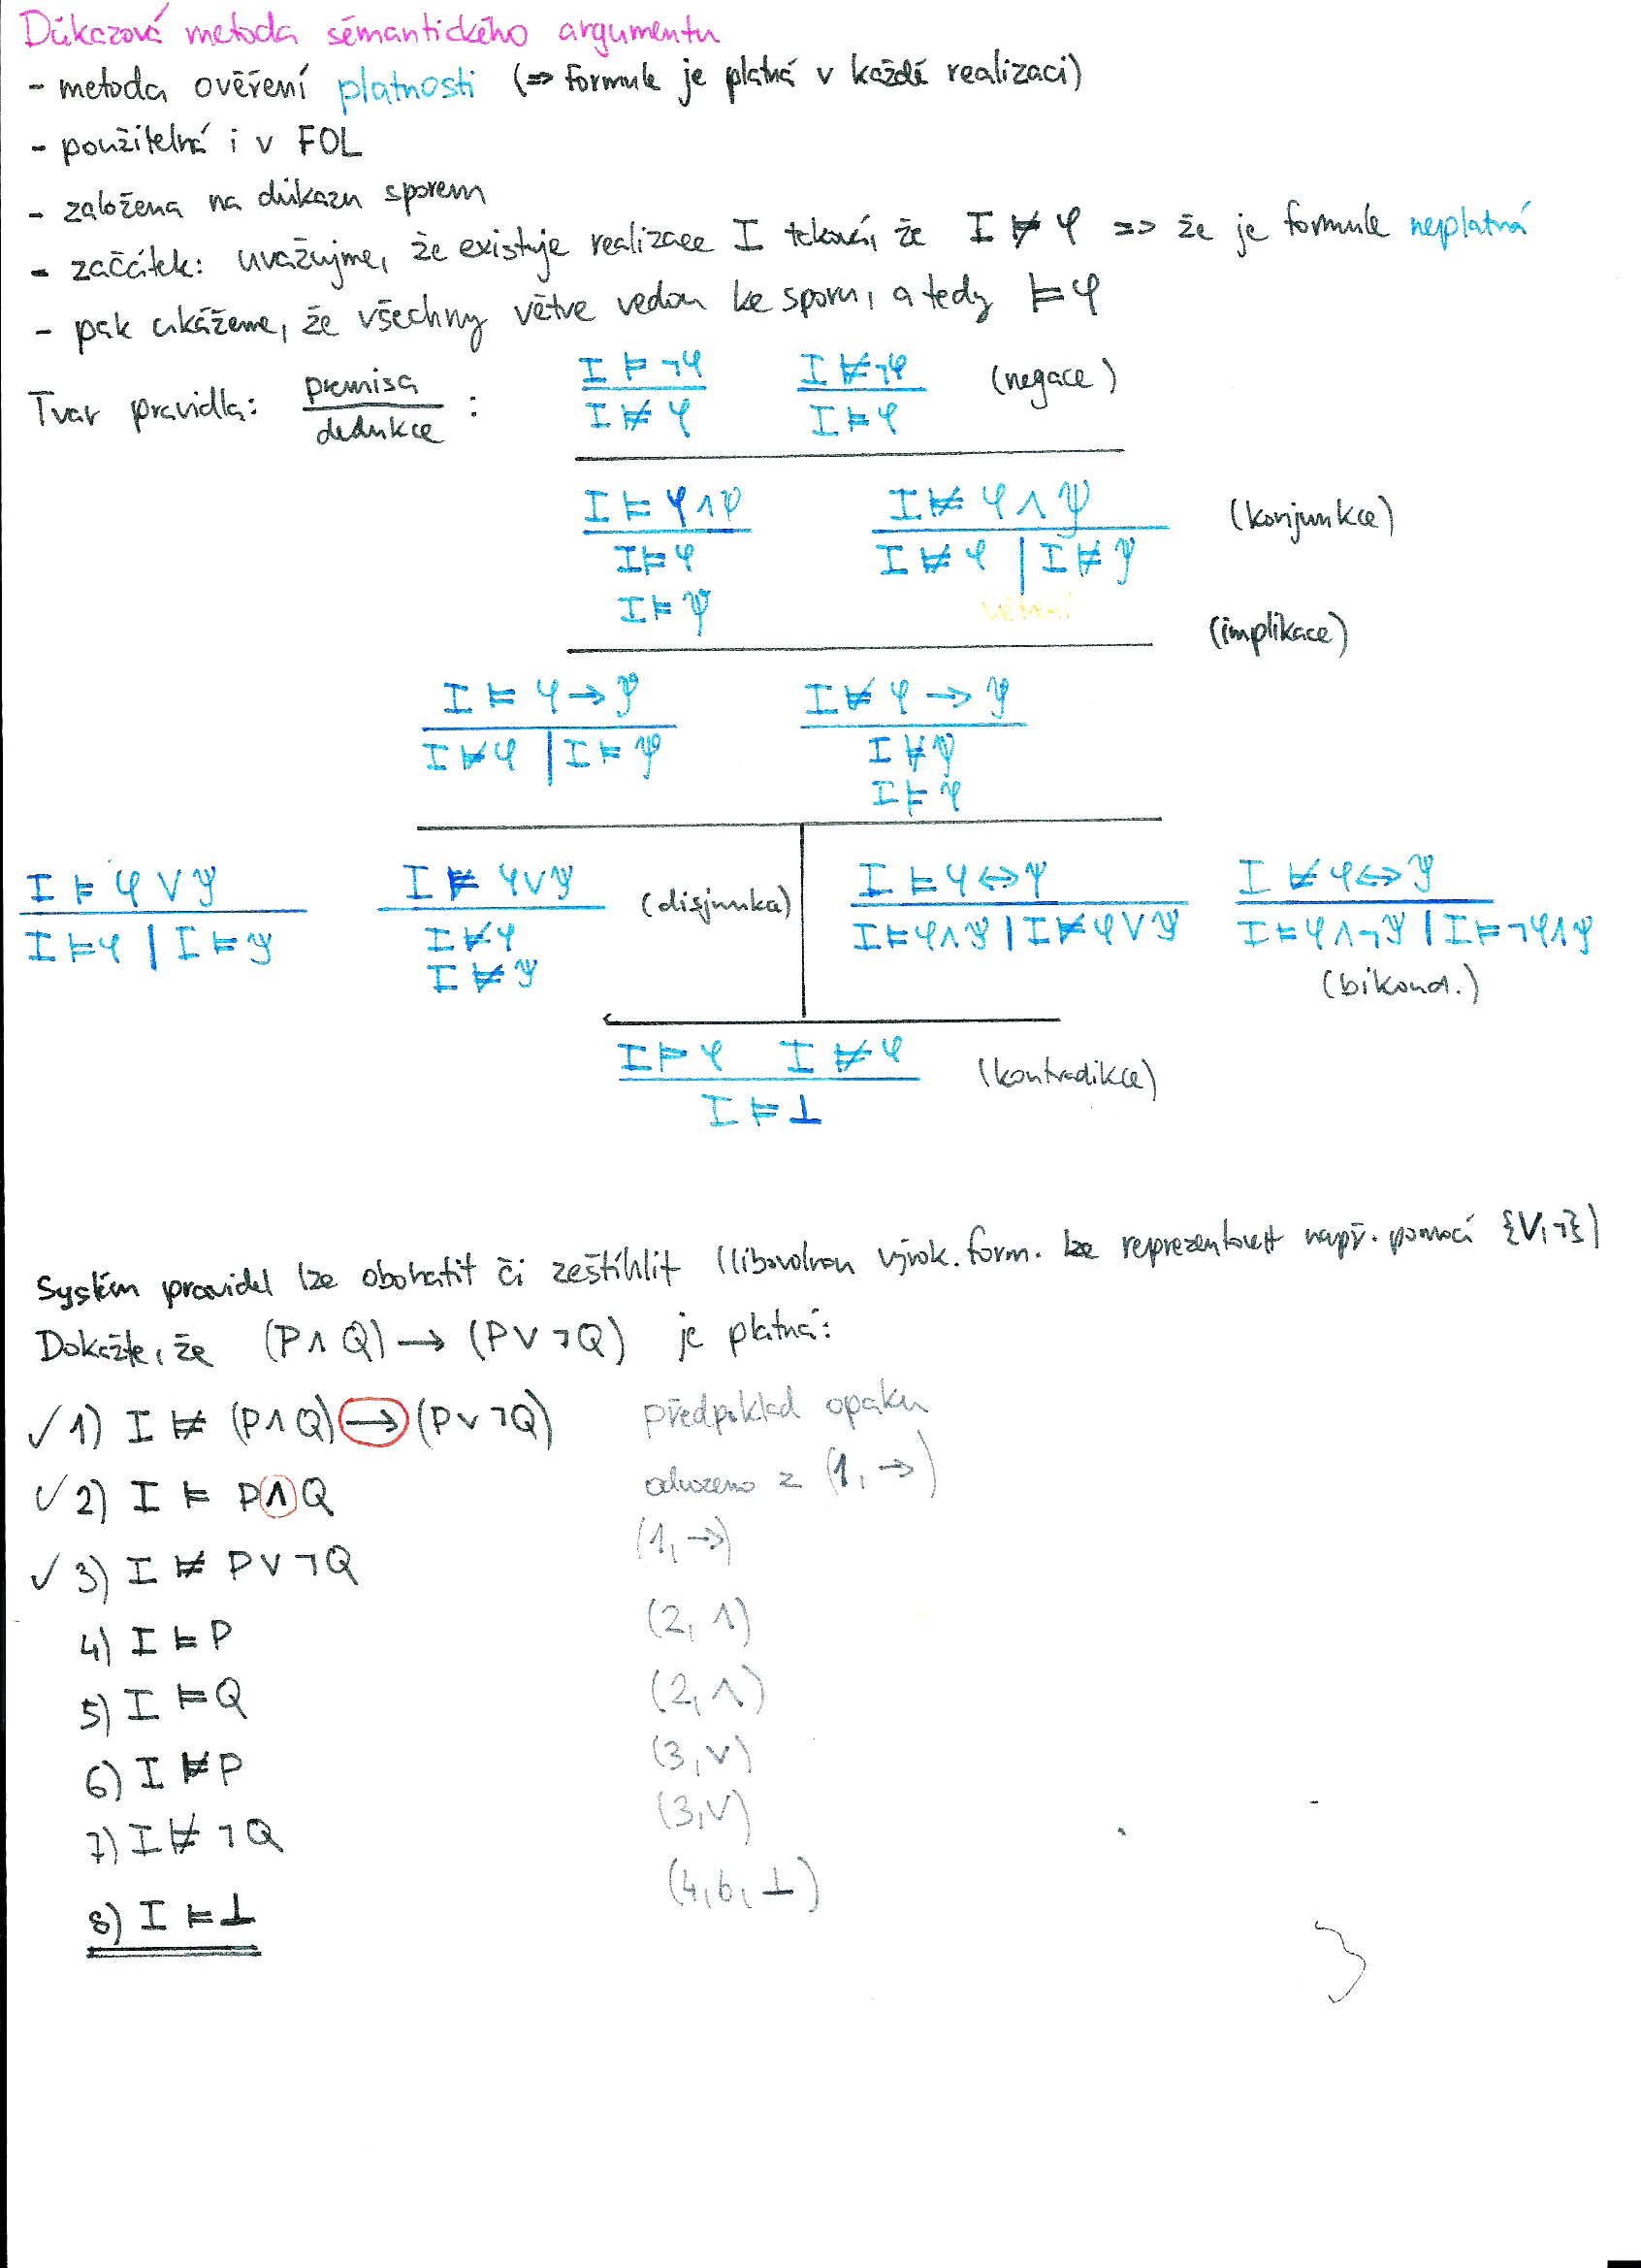 Důkazová metoda sémantického argumentu
- metoda ověření platnosti (=> formule je platná v každé realizaci)
- použitelná i v FOL
- založena na důkazu sporem
- začátek: uvažujme, že existuje realizace I taková, že I ⊭ φ => že je formule neplatná
- pak ukážeme, že všechny větve vedou ke sporu, a tedy ⊨ φ
Tvar pravidla: premisa / dedukce :
I ⊨ ¬φ I ⊭ ¬φ (negace)
I ⊭ φ I ⊨ φ
I ⊨ φ ∧ ψ I ⊭ φ ∧ ψ (konjunkce)
I ⊨ φ I ⊭ φ | I ⊭ ψ
I ⊨ ψ větvení
(implikace)
I ⊨ φ → ψ I ⊭ φ → ψ
I ⊭ φ | I ⊨ ψ I ⊭ ψ
I ⊨ φ
I ⊨ φ ∨ ψ I ⊭ φ ∨ ψ (disjunkce) I ⊨ φ ↔ ψ I ⊭ φ ↔ ψ
I ⊨ φ | I ⊨ ψ I ⊭ φ I ⊨ φ ∧ ψ | I ⊭ φ ∨ ψ I ⊨ φ ∧ ¬ψ | I ⊨ ¬φ ∧ ψ
I ⊭ ψ (bikond.)
I ⊨ φ I ⊭ φ (kontradikce)
I ⊨ ⊥
Systém pravidel lze obohatit či zeštíhlit (libovolnou výrok. form. lze reprezentovat např. pomocí {∨, ¬})
Dokažte, že (P ∧ Q) → (P ∨ ¬Q) je platná:
✓ 1) I ⊭ (P ∧ Q) → (P ∨ ¬Q) předpoklad opaku
✓ 2) I ⊨ P ∧ Q odvozeno z (1, →)
✓ 3) I ⊭ P ∨ ¬Q (1, →)
4) I ⊨ P (2, ∧)
5) I ⊨ Q (2, ∧)
6) I ⊭ P (3, ∨)
7) I ⊭ ¬Q (3, ∨)
8) I ⊨ ⊥ (4, 6, ⊥)